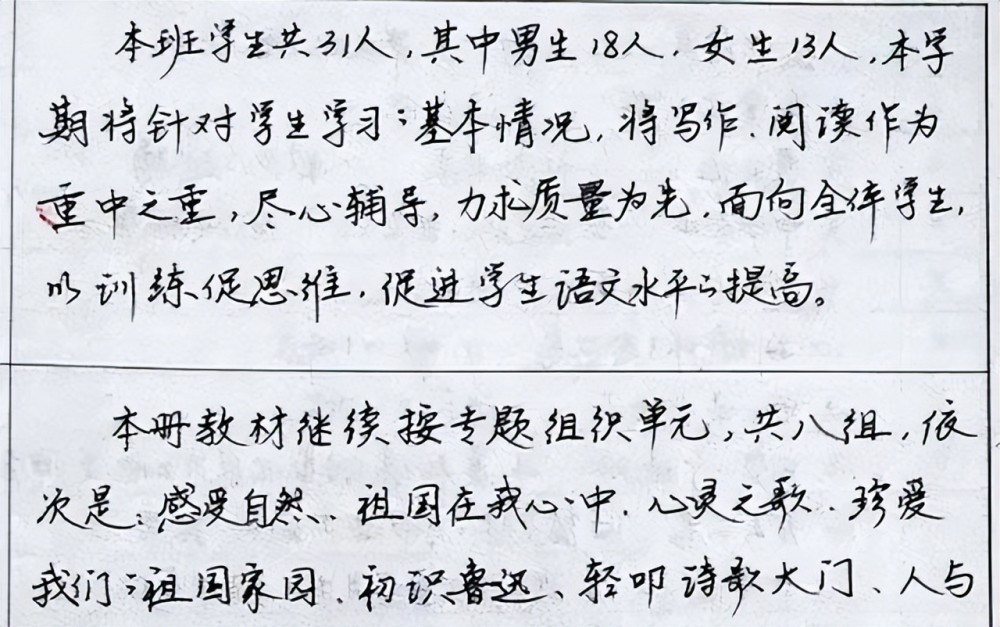 本班学生共31人,其中男生18人,女生13人,本学
期将针对学生学习的基本情况,将写作、阅读作为
重中之重,尽心辅导,力求质量为先,面向全体学生,
以训练促思维,促进学生语文水平的提高。
本册教材继续按专题组织单元,共八组,依
次是:感受自然、祖国在我心中、心灵之歌、珍爱
我们的祖国家园、初识鲁迅、轻叩诗歌大门、人与